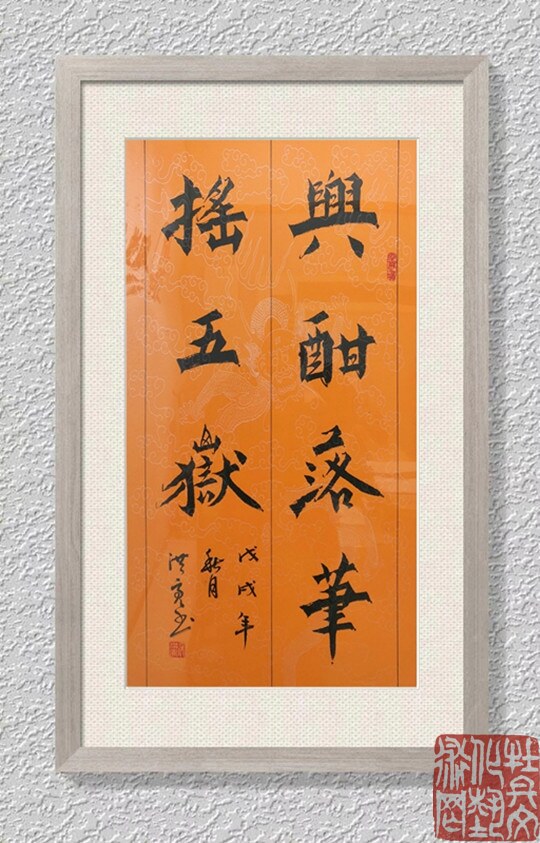 興酣落筆
搖五嶽
戊戌年
秋月